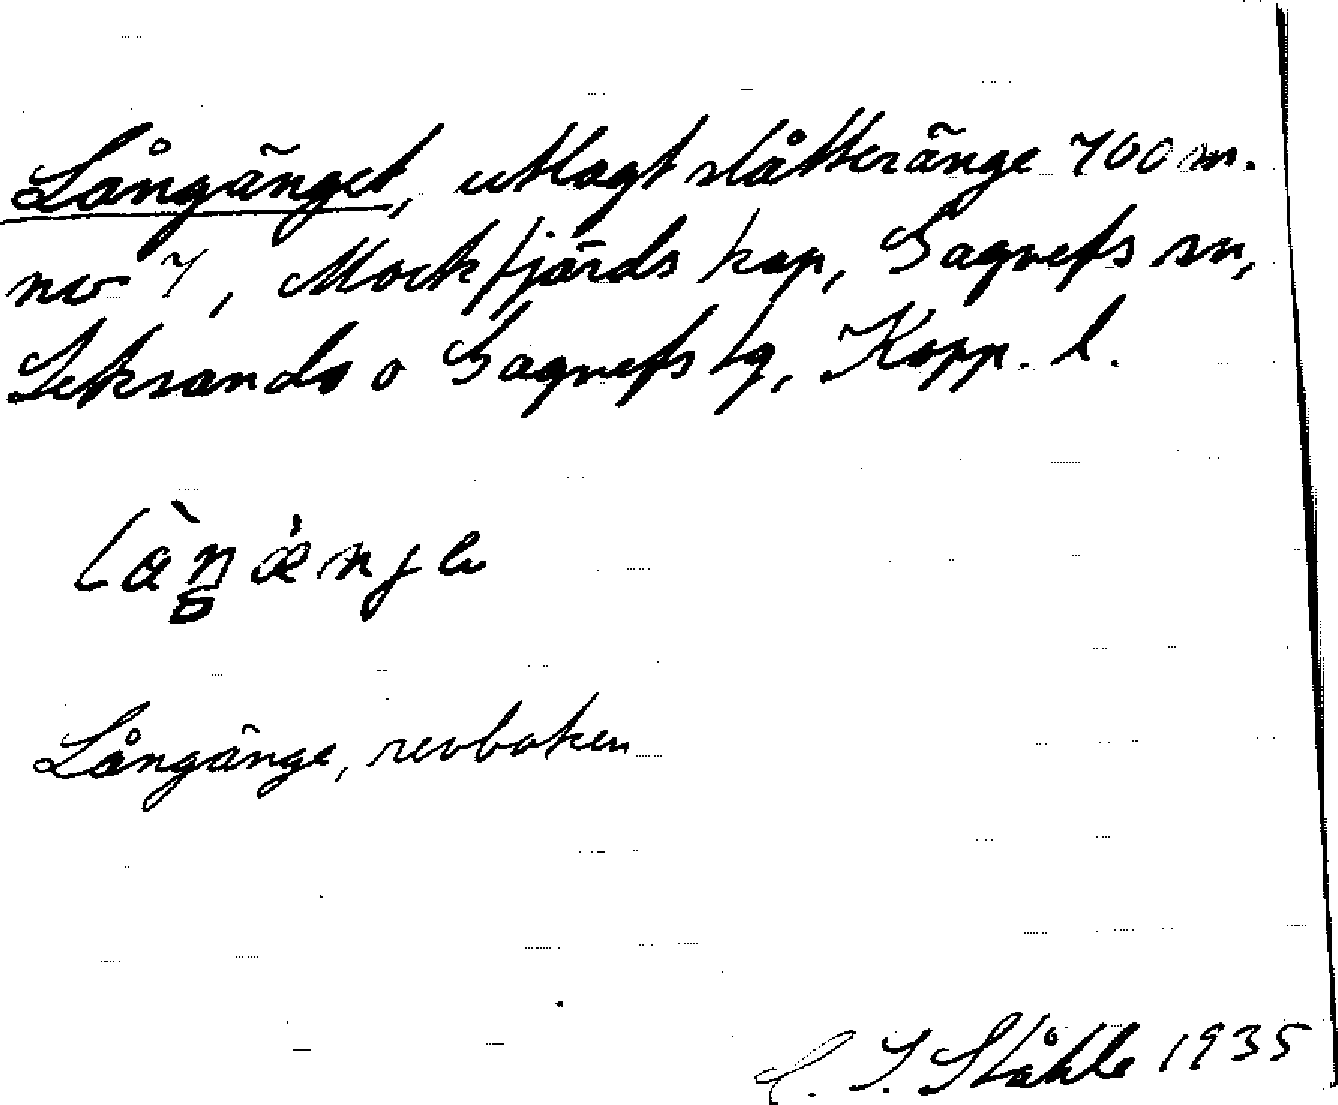 Långänget, utlagt slåtteränge 700 m.
nv 7, Mockfjärds kap, Gagnefs sn,
Leksands o Gagnefs tg, Kopp. l.
làŋænjə
Långänge, revboken
C. I. Ståhle 1935